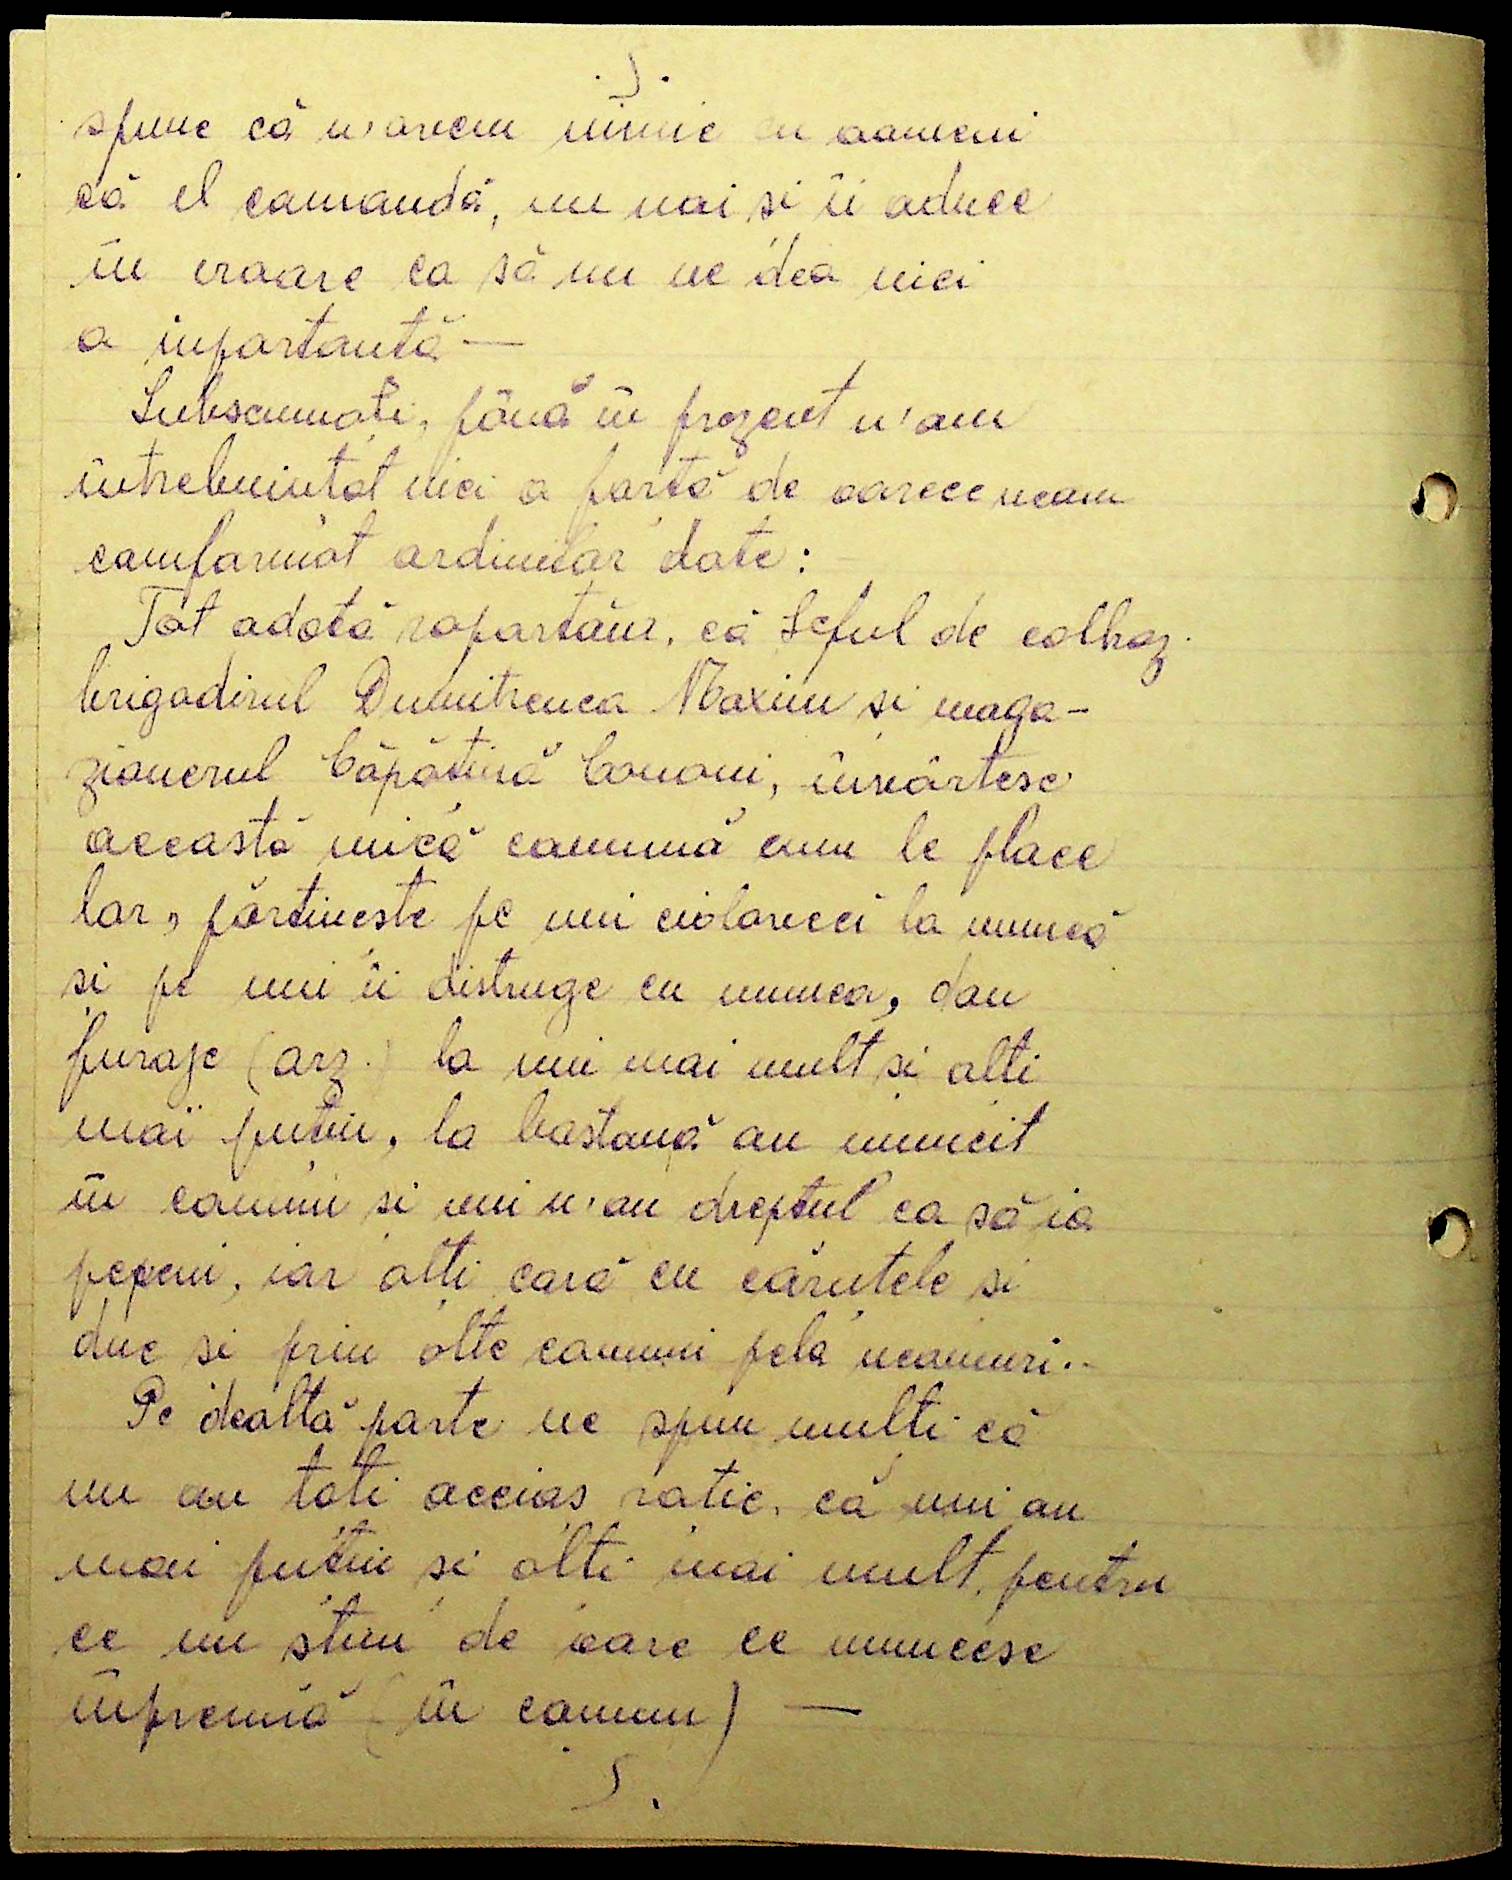 spune că n'avem nimic cu oameni
că el comandă, nu noi si îi aduce
în eroare ca să nu ne dea nici
o inportanță —
Subsemnați, până în prezent n'am
întrebuințat nici o forță de oarece neam
comformat ordinilor date:
Tot odată raportăm, că Seful de colhoz
brigadirul Dumitrenca Maxim și maga-
zionerul Căpățînă Cononi, învârtesc
această mică comună cum le place
lor, părtinește pe uni ciolovecci la muncă
și pe uni îi distruge cu munca, dau
furaje (orz.) la uni mai mult și alti
mai puțin, la bostană au muncit
în comun și uni n'au dreptul ca să ia
pepeni, iar alți cară cu căruțele și
duc si prin alte comuni pela neamuri..
Pe dealtă parte ne spun mulți că
nu au toți aceias rație, că uni au
mai puțin și alți mai mult, pentru
ce nu știm de oare ce muncesc
înpreună (în comun) —
5.